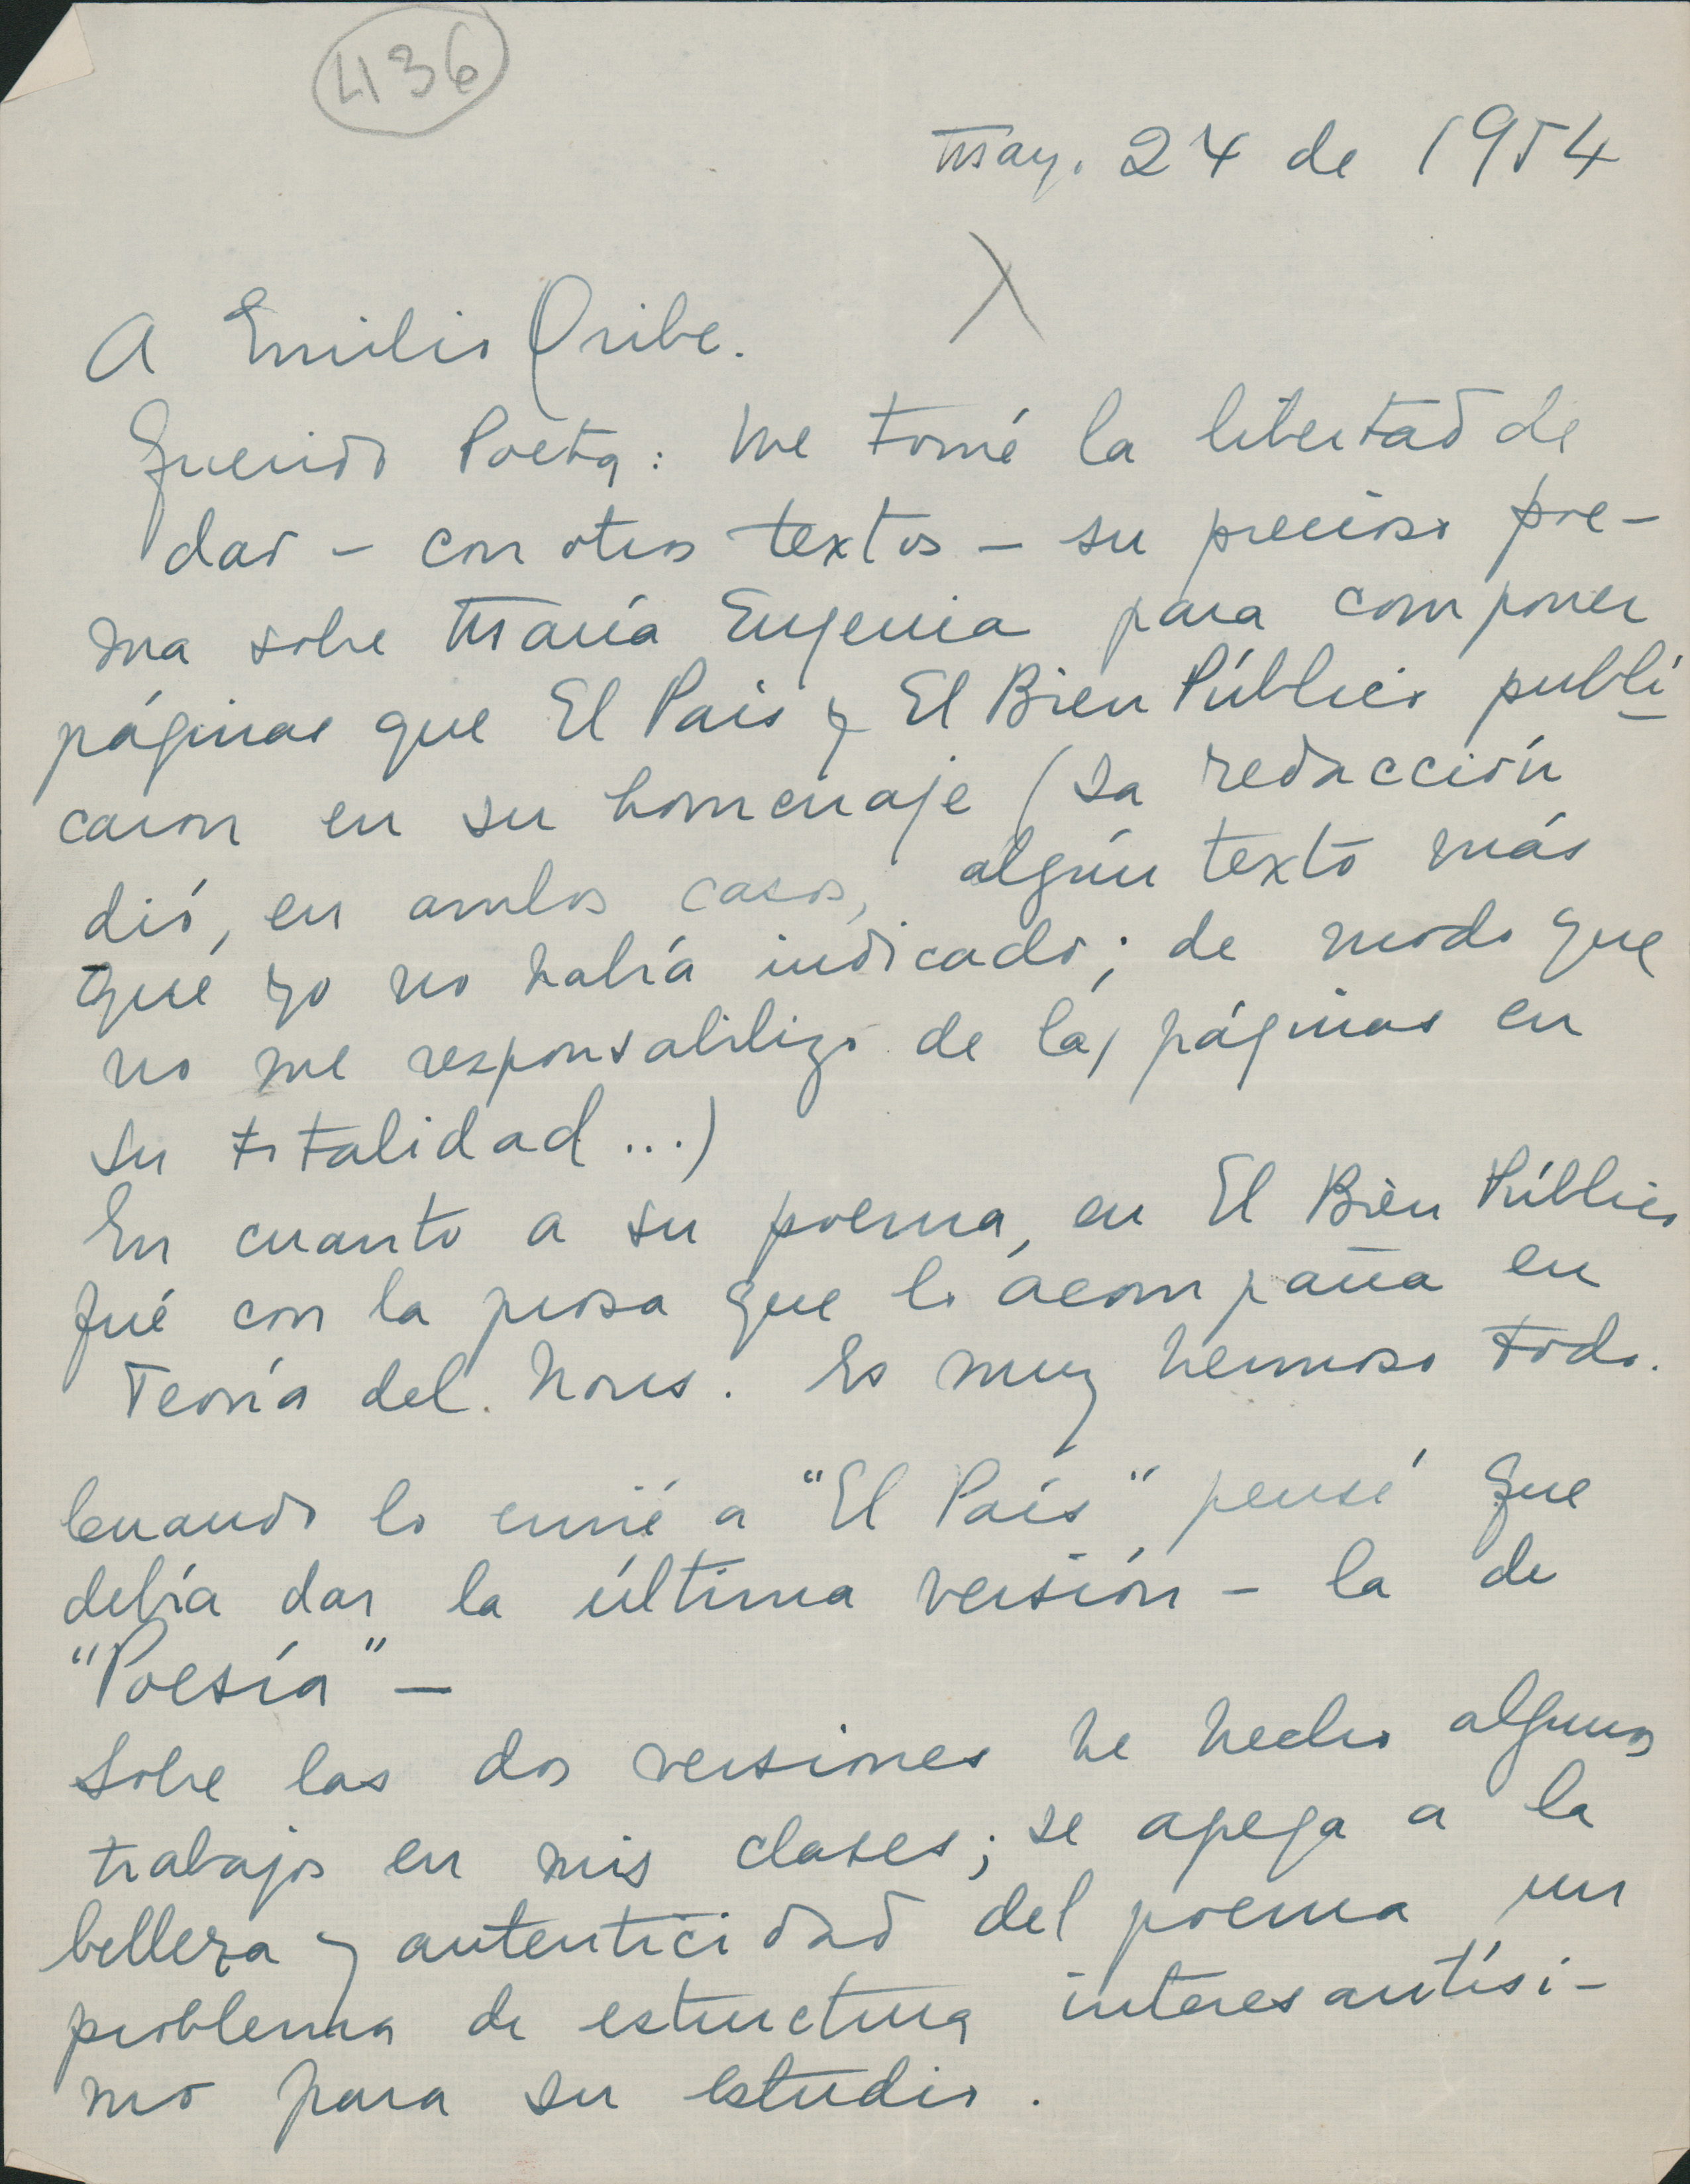 436
May. 24 de 1954
A Emilio Oribe.
Querido Poeta: Me tomé la libertad de
dar – con otros textos – su precioso poe-
ma sobre María Eugenia para componer
páginas que El Pais y El Bien Público publi
caron en su homenaje (La redacción
dió, en ambos casos, algún texto más
que yo no había indicado; de modo que
no me responsabilizo de las páginas en
su totalidad...)
En cuanto a su poema, en El Bien Público
fué con la prosa que lo acompaña en
Teoría del Nous. Es muy hermoso todo.
Cuando lo envié a "El País" pensé que
debía dar la última versión – la de
"Poesía" –
Sobre las dos versiones he hecho algunos
trabajos en mis clases; se apega a la
belleza y autenticidad del poema un
problema de estructura interesantísi-
mo para su estudio.